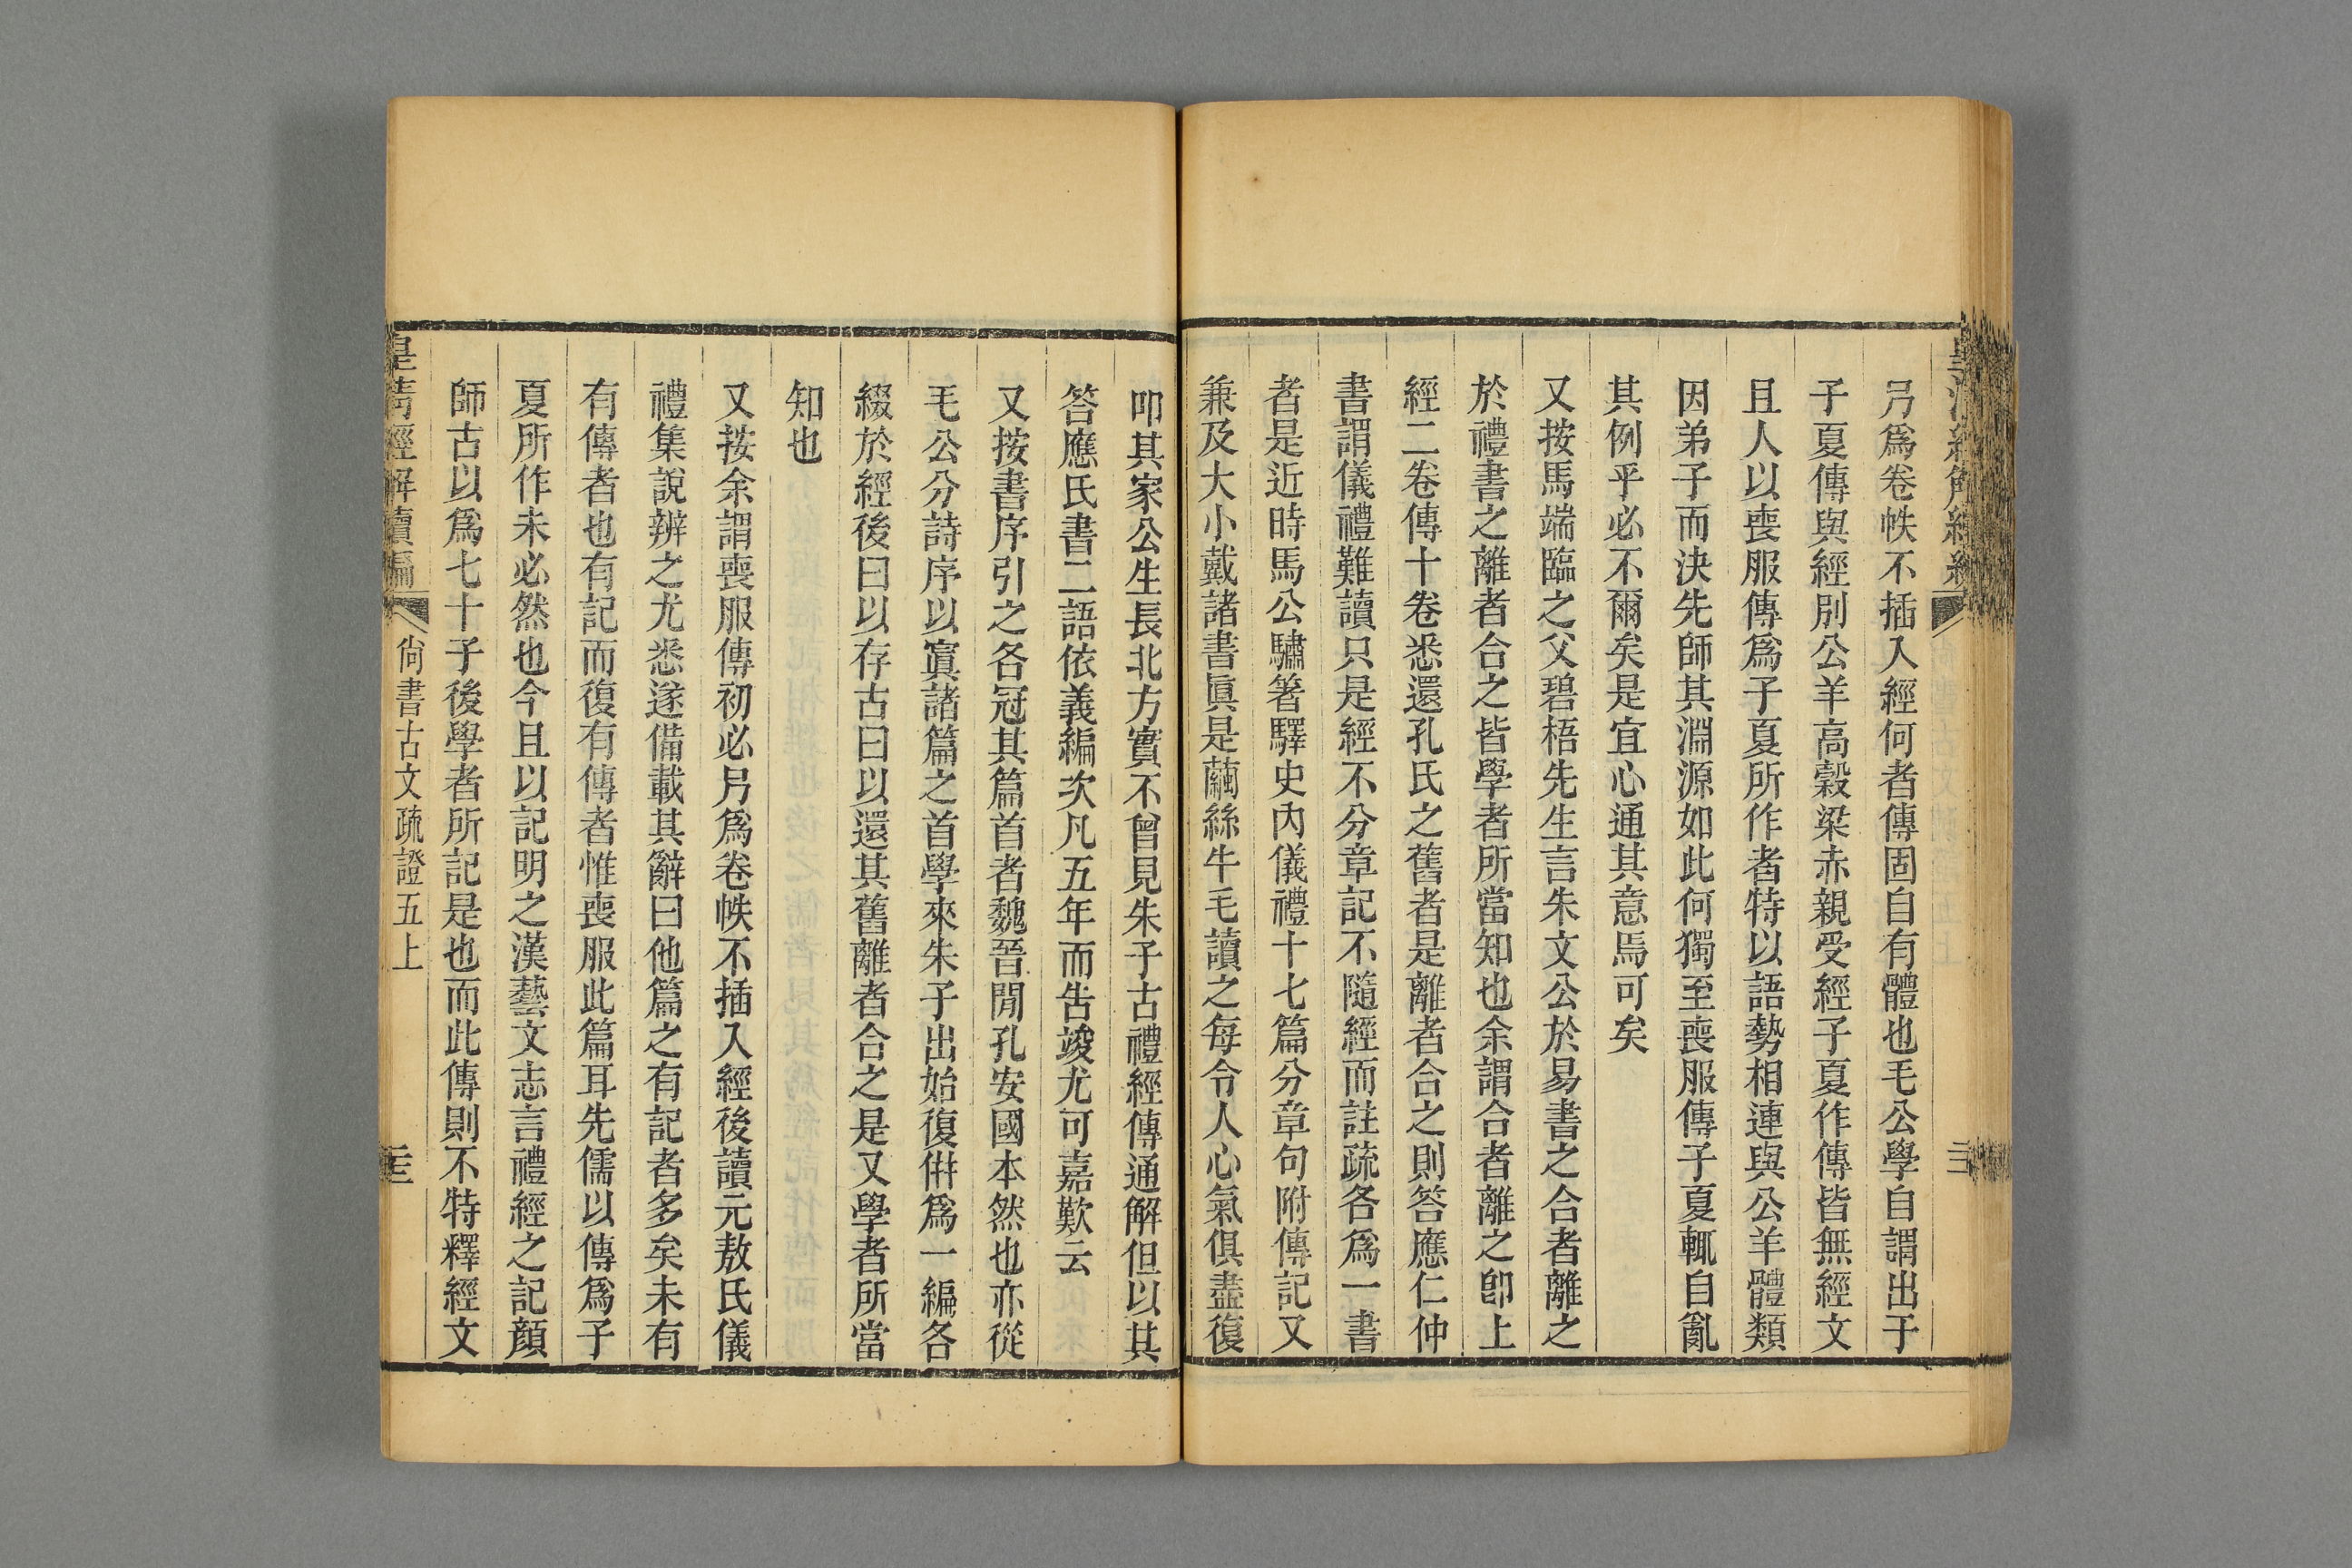 弓爲卷帙不插入經何者傳固自有體也毛公學自謂出于
子夏傳與經別公羊高穀梁赤親受經子夏作傳皆無經文
且人以喪服傳爲子夏所作者特以語勢相連與公羊體類
因弟子而決先師其淵源如此何獨至喪服傳子夏輒自亂
其例乎必不爾矣是宜心通其意焉可矣
又按馬端臨之父碧梧先生言朱文公於易書之合者離之
於禮書之離者合之皆學者所當知也余謂合者離之卽上
經二卷傳十卷悉還孔氏之舊者是離者合之則答應仁仲
書謂儀禮難讀只是經不分章記不隨經而註疏各爲一書
者是近時馬公驌箸驛史內儀禮十七篇分章句附傳記又
兼及大小戴諸書眞是繭絲牛毛讀之每令人心氣俱盡復
叩其家公生長北方實不曾見朱子古禮經傳通解但以其
答應氏書二語依義編次凡五年而告竣尤可嘉歎云
又按書序引之各冠其篇首者魏晉閒孔安國本然也亦從
毛公分詩序以寘諸篇之首學來朱子出始復併爲一編各
綴於經後曰以存古曰以還其舊離者合之是又學者所當
知也
又按余謂喪服傳初必弓爲卷帙不插入經後讀元敖氏儀
禮集說辨之尤悉遂備載其辭曰他篇之有記者多矣未有
有傳者也有記而復有傳者惟喪服此篇耳先儒以傳爲子
夏所作未必然也今且以記明之漢藝文志言禮經之記顏
師古以爲七十子後學者所記是也而此傳則不特釋經文
皇淸經解續編
尙書古文疏證五上